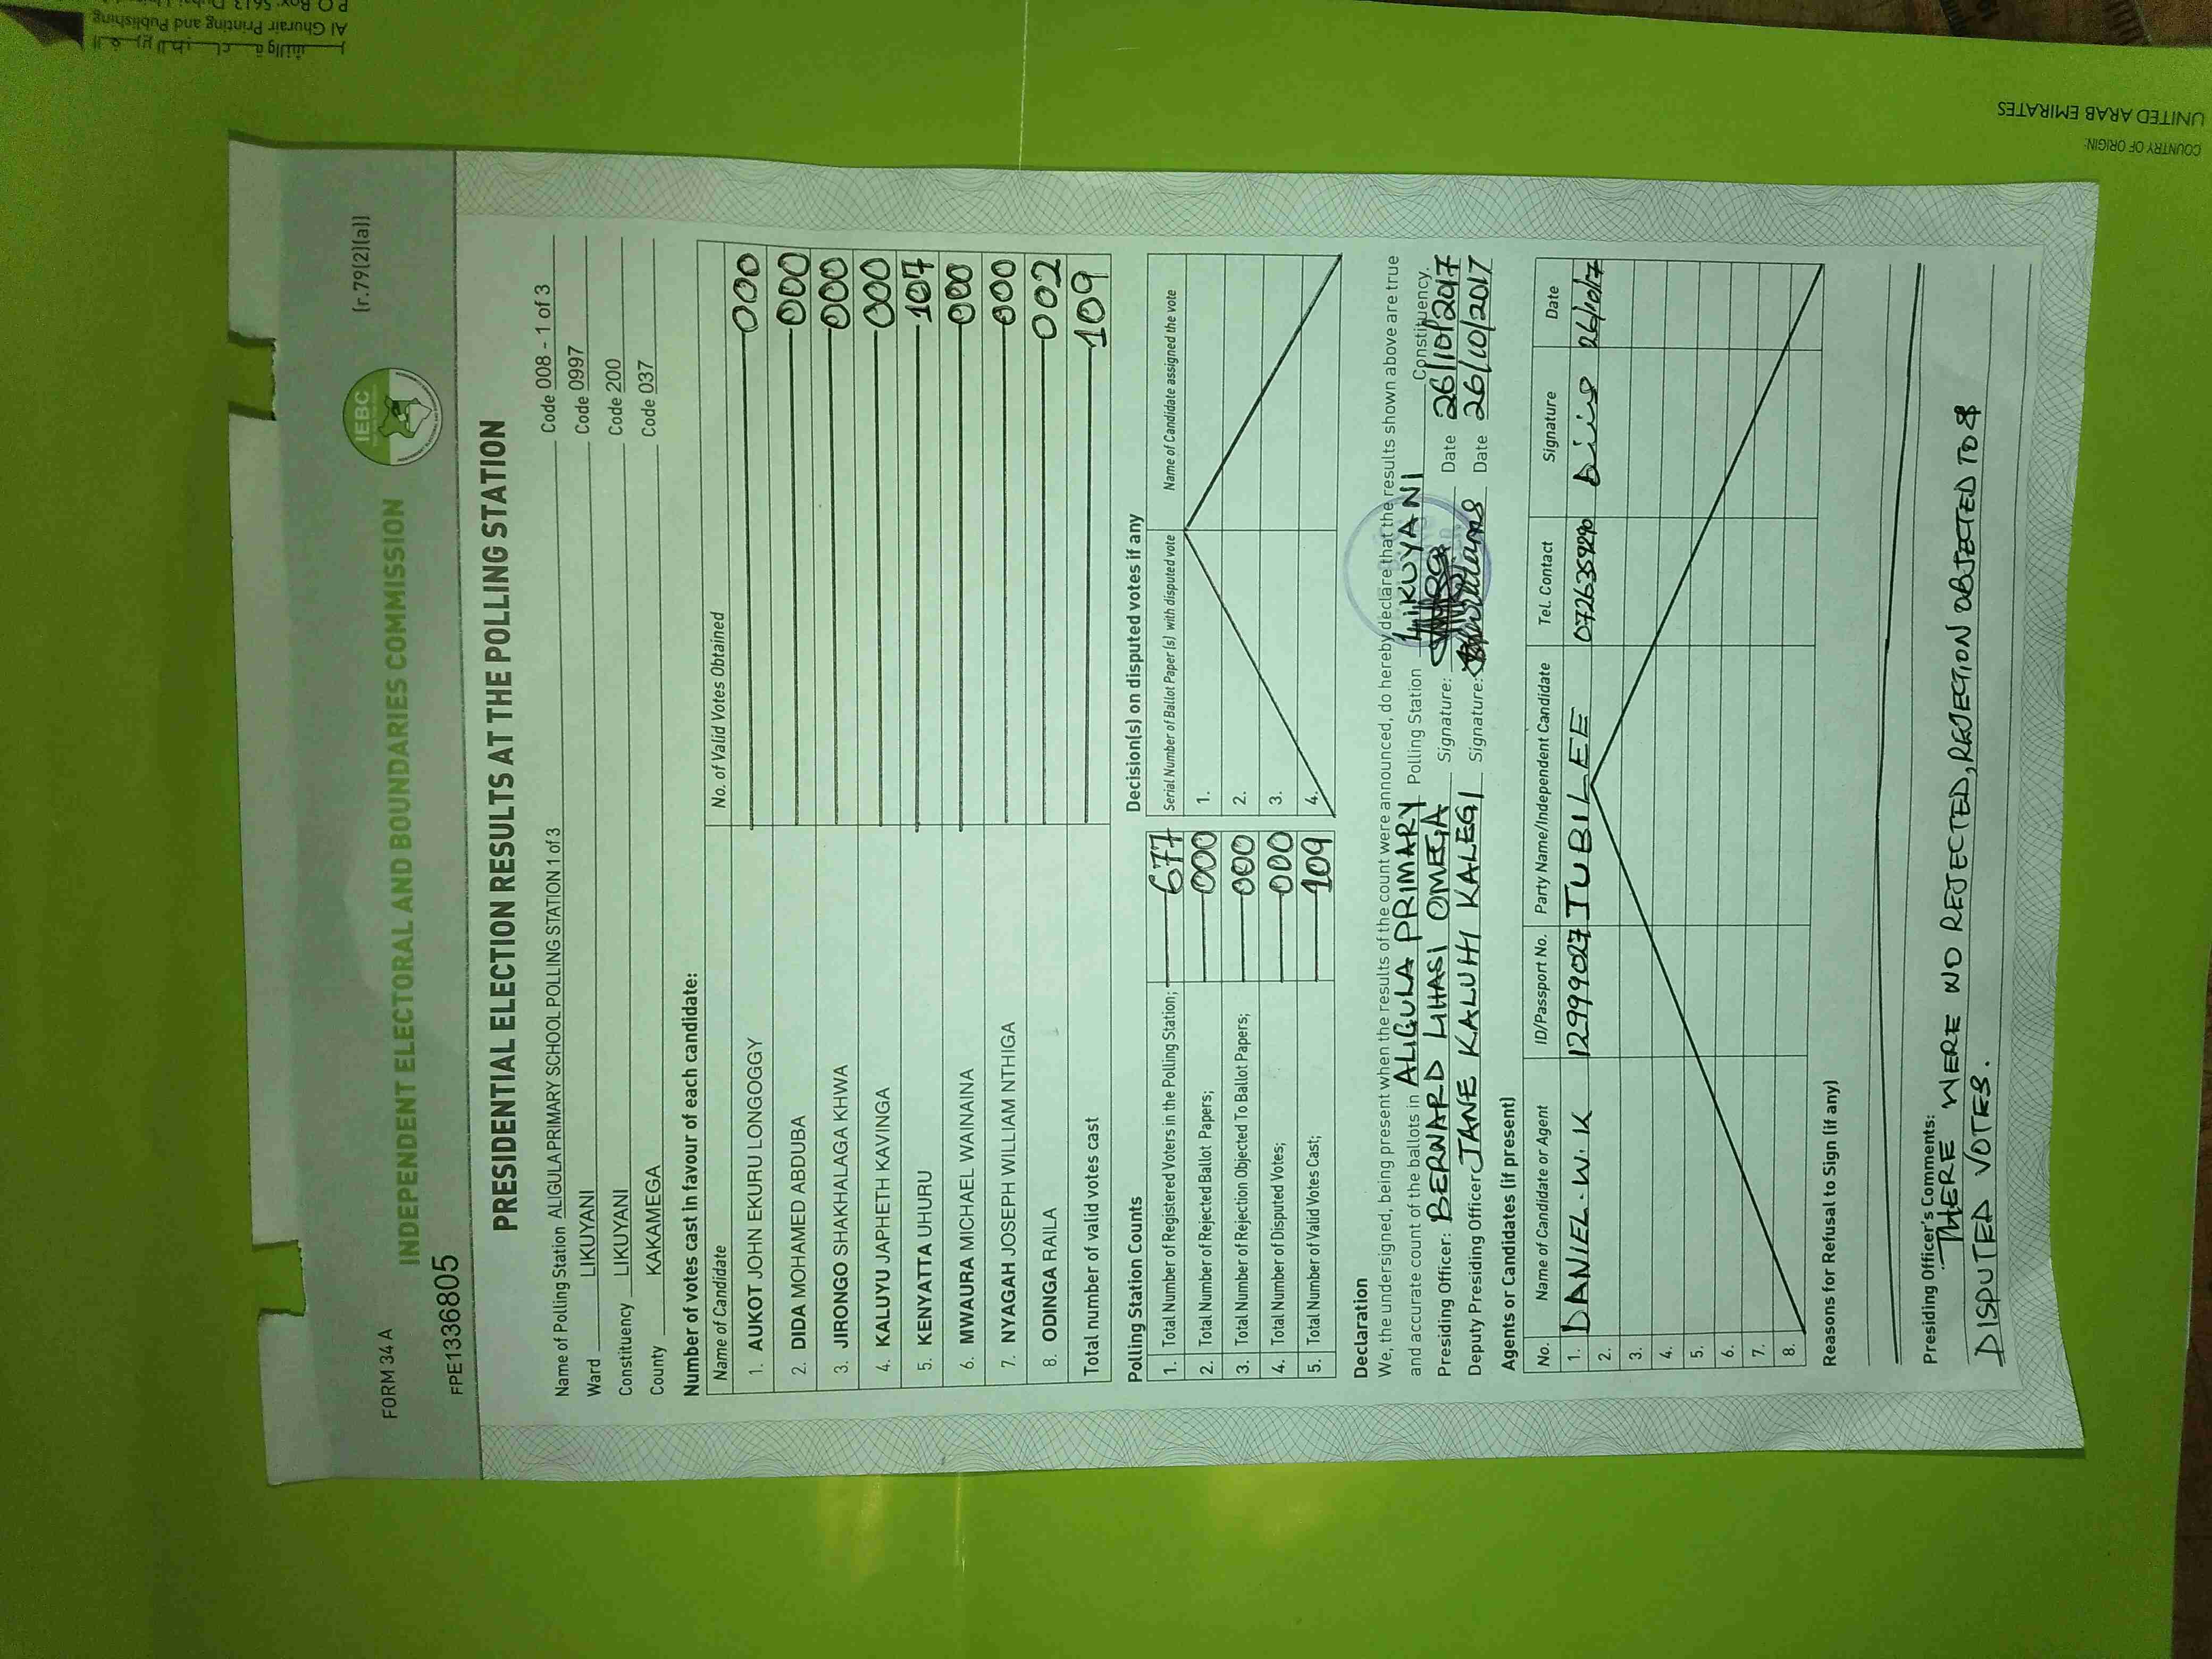 FORM 34 A
(r.79(2)(a))
IEBC
INDEPENDENT ELECTORAL AND BOUNDARIES COMMISSION
FPE1336805
PRESIDENTIAL ELECTION RESULTS AT THE POLLING STATION
Name of Polling Station ALIGULA PRIMARY SCHOOL POLLING STATION 1 of 3 Code 008 - 1 of 3
Ward LIKUYANI Code 0997
Constituency LIKUYANI Code 200
County KAKAMEGA Code 037
Number of votes cast in favour of each candidate:
Name of Candidate No. of Valid Votes Obtained
1. AUKOT JOHN EKURU LONGOGGY 000
2. DIDA MOHAMED ABDUBA 000
3. JIRONGO SHAKHALAGA KHWA 000
4. KALUYU JAPHETH KAVINGA 000
5. KENYATTA UHURU 107
6. MWAURA MICHAEL WAINAINA 000
7. NYAGAH JOSEPH WILLIAM NTHIGA 000
8. ODINGA RAILA 002
Total number of valid votes cast 109
Polling Station Counts
1. Total Number of Registered Voters in the Polling Station; 677
2. Total Number of Rejected Ballot Papers; 000
3. Total Number of Rejection Objected To Ballot Papers; 000
4. Total Number of Disputed Votes; 000
5. Total Number of Valid Votes Cast; 109
Decision(s) on disputed votes if any
Serial Number of Ballot Paper (s) with disputed vote Name of Candidate assigned the vote
1.
2.
3.
4.
Declaration
We, the undersigned, being present when the results of the count were announced, do hereby declare that the results shown above are true
and accurate count of the ballots in ALIGULA PRIMARY Polling Station LIKUYANI Constituency.
Presiding Officer: BERNARD LIHASI OMEGA Signature: Date 26/10/2017
Deputy Presiding Officer JANE KALUHI KALEGI Signature: Date 26/10/2017
Agents or Candidates (if present)
No. Name of Candidate or Agent ID/Passport No. Party Name/Independent Candidate Tel. Contact Signature Date
1. DANIEL.W.K 12999027 JUBILEE 0726359290 26/10/17
2.
3.
4.
5.
6.
7.
8.
Reasons for Refusal to Sign (if any)
Presiding Officer's Comments:
THERE WERE NO REJECTED, REJECTION OBJECTED TO &
DISPUTED VOTES.
Al Ghurair Printing and Publishing
COUNTRY OF ORIGIN:
UNITED ARAB EMIRATES